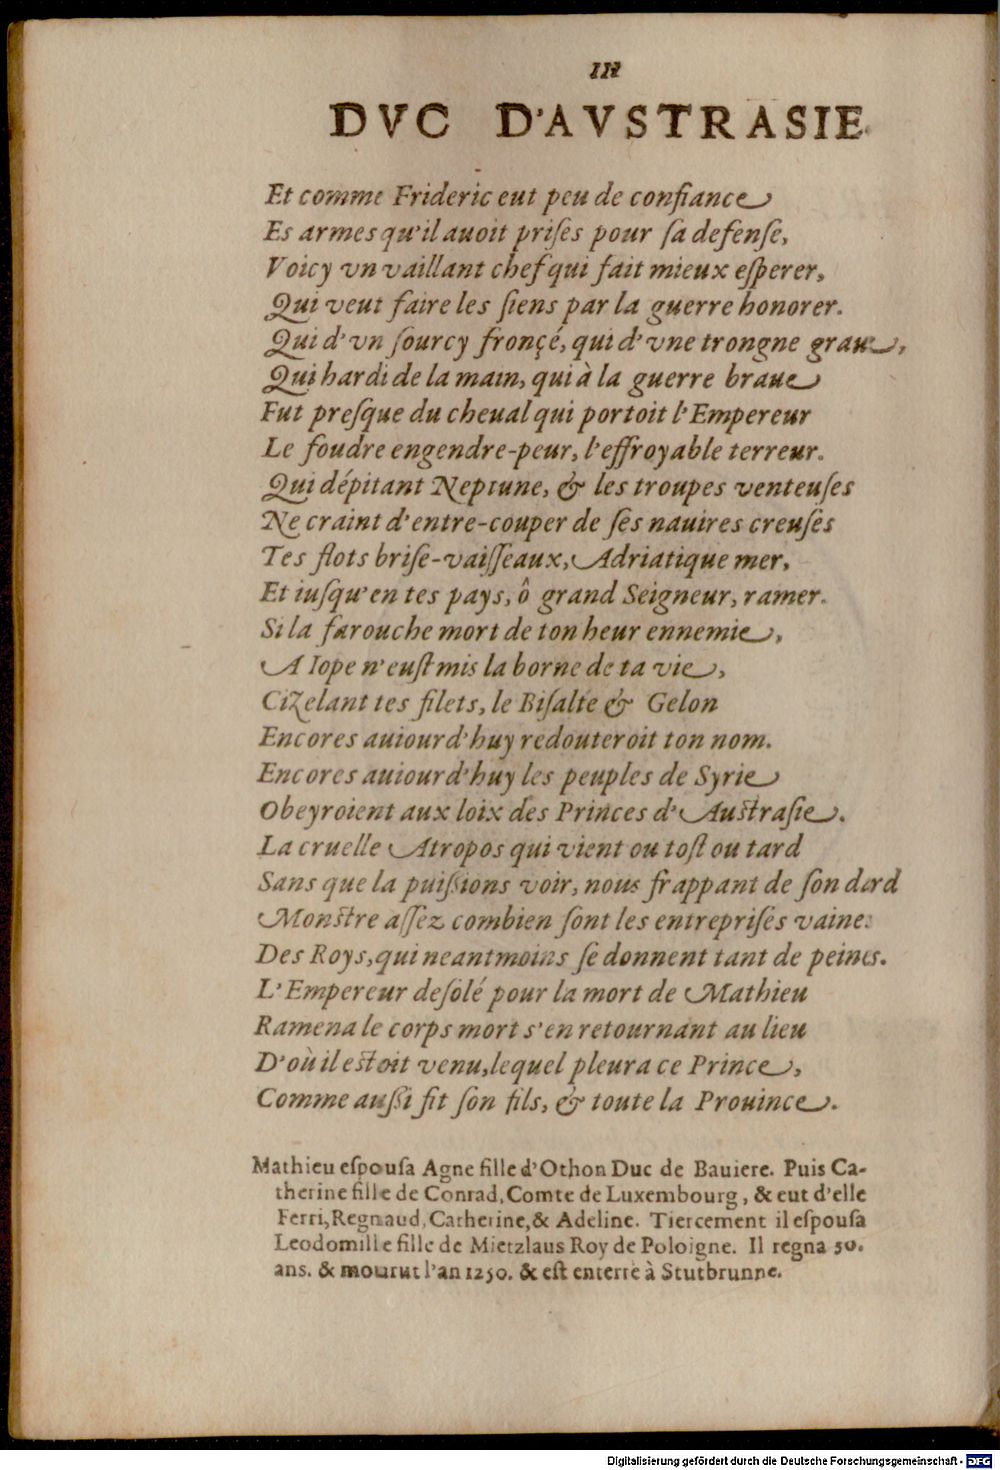 III
DVC D'AVSTRASIE
Et comme Frideric eut peu de confiance
Es armes qu'il auoit priſes pour ſa defenſe,
Voicy vn vaillant chef qui fait mieux eſperer,
Qui veut faire les ſiens par la guerre honorer.
Qui d'vn ſourcy fronçé, qui d'vne trongne graue,
Qui hardi de la main, qui à la guerre braue
Fut preſque du cheual qui portoit l'Empereur
Le foudre engendre-peur, l'effroyable terreur.
Qui dépitant Neptune, & les troupes venteuſes
Ne craint d'entre-couper de ſes nauires creuſes
Tes flots briſe-vaiſſeaux, Adriatique mer,
Et iuſqu'en tes pays, ô grand Seigneur, ramer.
Si la farouche mort de ton heur ennemie,
A Iope n'euſt mis la borne de ta vie,
Cizelant tes filets, le Biſalte & Gelon
Encores auiourd'huy redouteroit ton nom.
Encores auiourd'huy les peuples de Syrie
Obeyroient aux loix des Princes d'Auſtraſie.
La cruelle Atropos qui vient ou toſt ou tard
Sans que la puiſsions voir, nous frappant de ſon dard
Monſtre aſſez combien ſont les entrepriſes vaines
Des Roys, qui neantmoins ſe donnent tant de peines.
L'Empereur deſolé pour la mort de Mathieu
Ramena le corps mort s'en retournant au lieu
D'où il eſtoit venu, lequel pleura ce Prince,
Comme auſsi fit ſon fils, & toute la Prouince.
Mathieu eſpouſa Agne fille d'Othon Duc de Bauiere. Puis Ca-
therine fille de Conrad, Comte de Luxembourg, & eut d'elle
Ferri, Regnaud, Catherine, & Adeline. Tiercement il eſpouſa
Leodomille fille de Mietzlaus Roy de Poloigne. Il regna 50.
ans. & mourut l'an 1250. & eſt enterré à Stutbrunne.
Digitalisierung gefördert durch die Deutsche Forschungsgemeinschaft - DFG